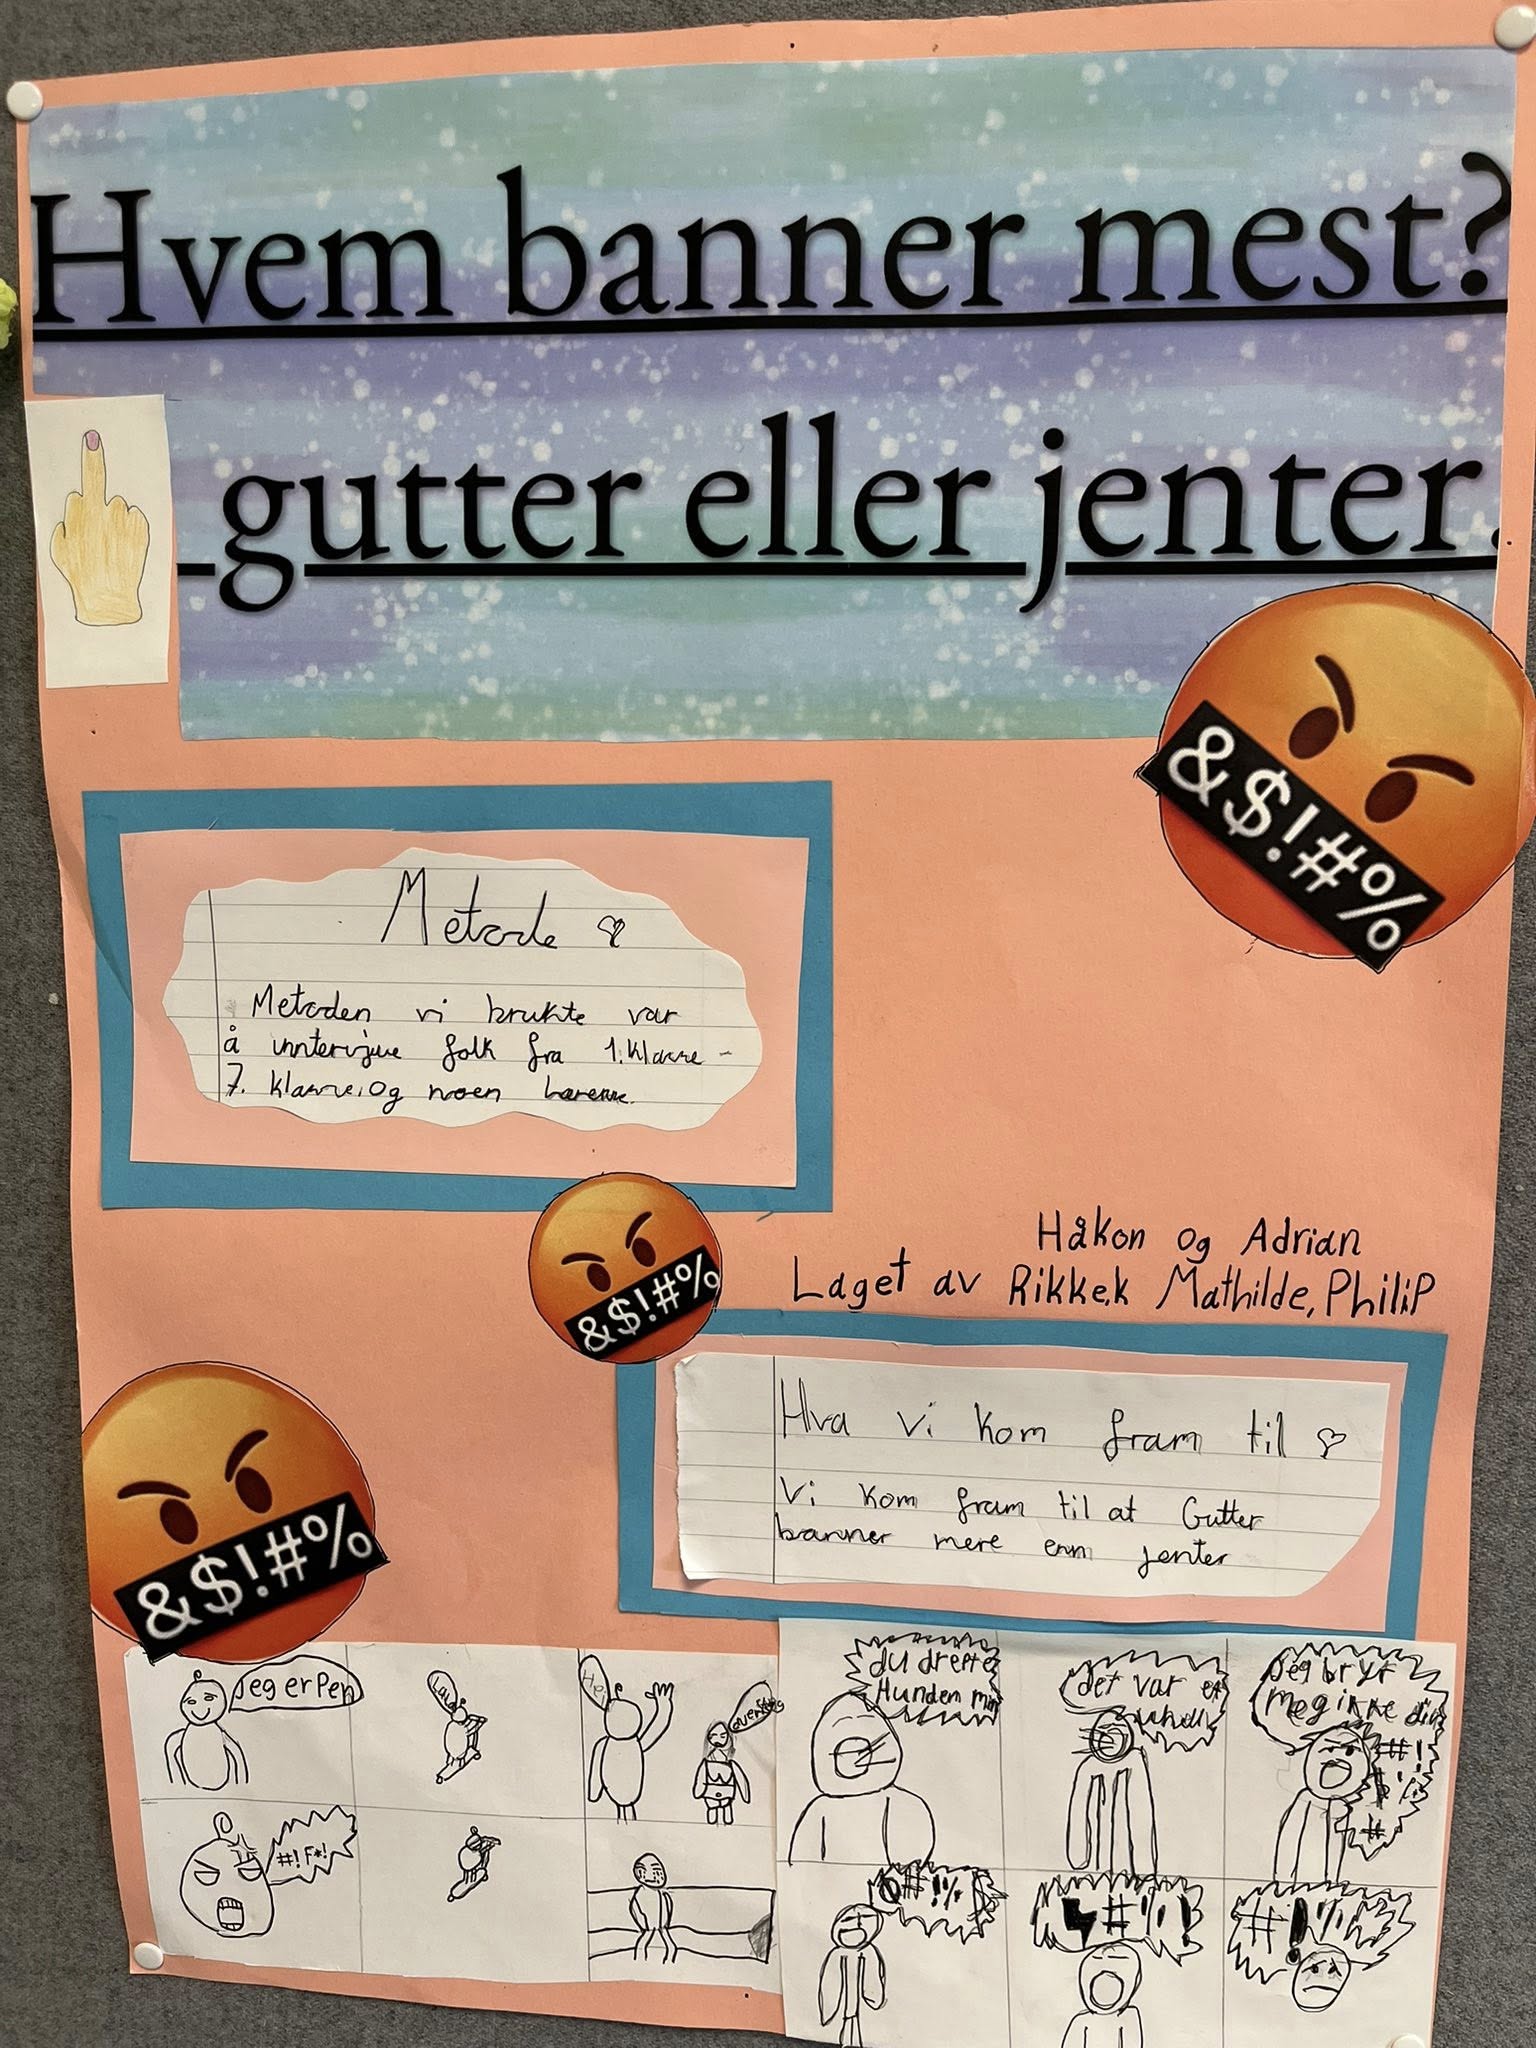 Hvem banner mest?
gutter eller jenter.
&$!#%
Metode
Metoden vi brukte var
å inntervjue folk fra 1. klasse -
7. klasse, og noen lærerne.
&$!#%
Håkon og Adrian
Laget av Rikke.k Mathilde, PhiliP
Hva vi kom fram til
Vi kom fram til at Gutter
banner mere enn jenter
&$!#%
Jeg er Pen
Hei
#!F*!
du drepte
Hunden min
det var et
Jeg bryr
meg ikke din
#!